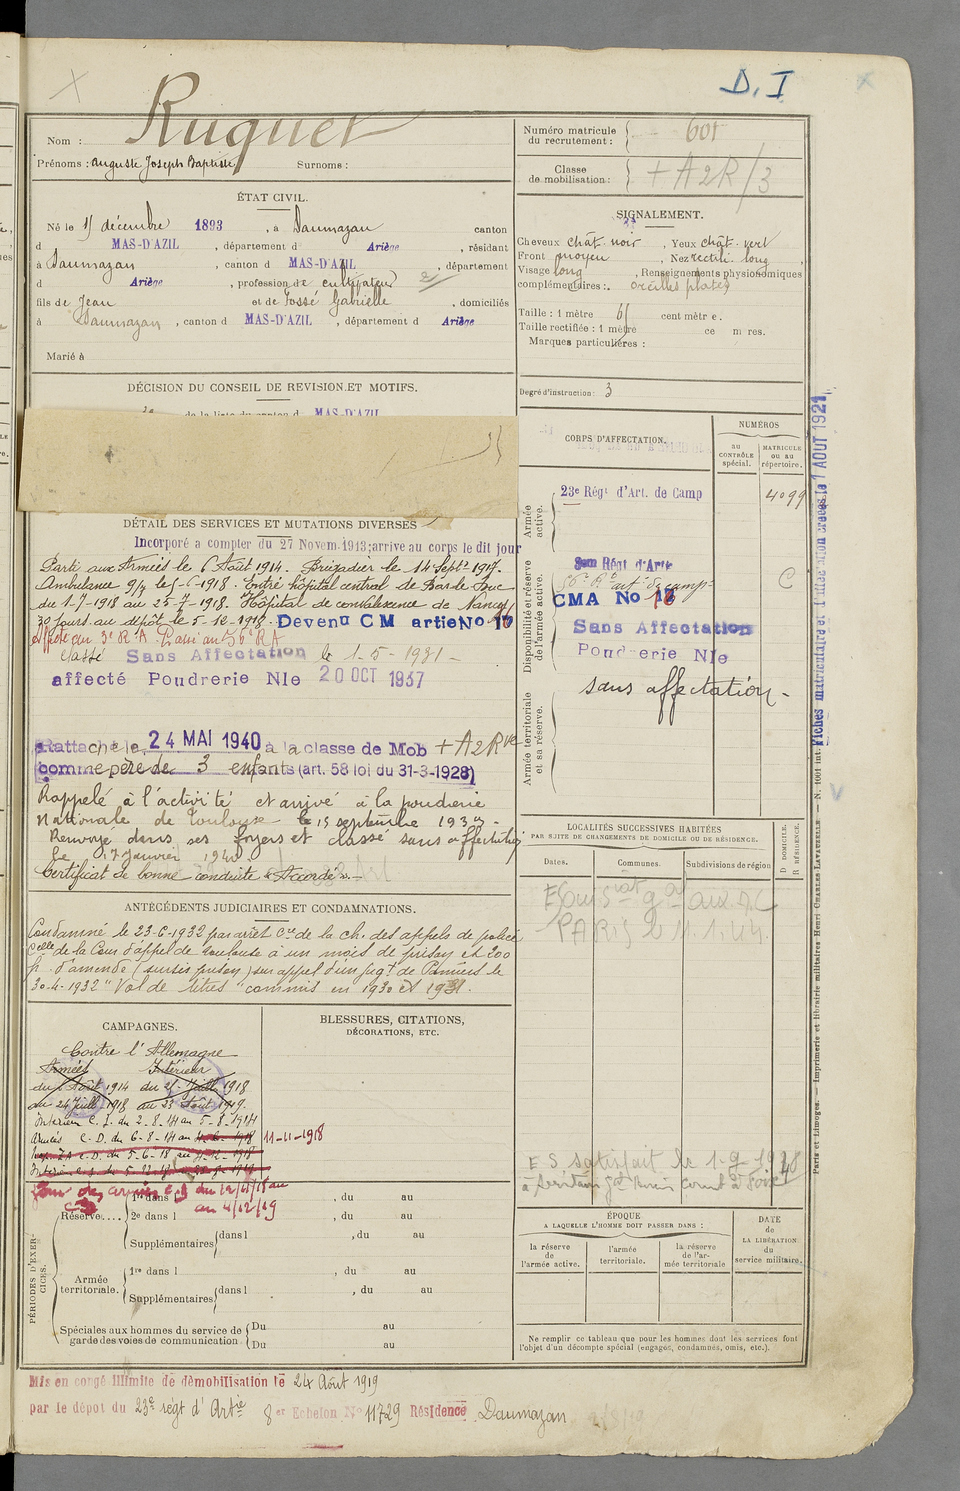 D. I
Nom : Ruquet
Prénoms : Auguste Joseph Baptiste Surnoms :
ÉTAT CIVIL.
Né le décembre 1893, à Daumazan canton
d MAS-D'AZIL, département d Ariège, résidant
à Daumazan, canton d MAS-D'AZIL, département
d Ariège, profession de cultivateur
fils de Jean et de Fossé Gabrielle, domiciliés
à Daumazan, canton d MAS-D'AZIL, département d Ariège
Marié à
DÉCISION DU CONSEIL DE REVISION ET MOTIFS.
de la liste du canton d MAS-D'AZIL
DÉTAIL DES SERVICES ET MUTATIONS DIVERSES
Incorporé a compter du 27 Novem. 1913; arrive au corps le dit jour
Parti aux Armées le 6 Août 1914. Brigadier le 14 Septre 1917.
Ambulance 9/4 le 5-6-1918. Entré hôpital central de Bar le Duc
du 1-7-1918 au 25-7-1918. Hôpital de convalescence de Nancy
30 jours au dépôt le 5-12-1918. Devenu C M artie No 17
Affecté au 3e R.A. Passé au 56e RA
Classé Sans Affectation le 1-5-1931 -
affecté Poudrerie Nle 20 OCT 1937
Rattaché le 24 MAI 1940 à la classe de Mob + A2Rve
comme père de 3 enfants (art. 58 loi du 31-3-1928)
Rappelé à l'activité et arrivé à la poudrerie
Nationale de Toulouse le 15 septembre 1939 -
Renvoyé dans ses foyers et classé sans affectation
le 17 Janvier 1940.
Certificat de bonne conduite "Accordé". -
ANTÉCÉDENTS JUDICIAIRES ET CONDAMNATIONS.
Condamné le 23-6-1932 par arrêt Cre de la ch. des appels de police
Celle de la Cour d'appel de Toulouse à un mois de prison et 200
fr. d'amende (sursis prison) sur appel d'un jugt de Pamiers le
30-4-1932 "Vol de titres" commis en 1930 et 1931.
CAMPAGNES.
Contre l'Allemagne
Armées Intérieur
du Août 1914 du 25 Juillet 1918
au 24 Juill 1918 au 23 Août 1919.
Intérieur C.S. du 2-8-14 au 5-8-1914
Armées C.D. du 6-8-14 au 11-11-1918
au 4/12/19
BLESSURES, CITATIONS,
DÉCORATIONS, ETC.
PÉRIODES D'EXERCICES.
Réserve.... 1re dans l , du au
2e dans l , du au
Supplémentaires dans l , du au
Armée territoriale. 1re dans l , du au
Supplémentaires dans l , du au
Spéciales aux hommes du service de garde des voies de communication Du au
Du au
Numéro matricule du recrutement : 601
Classe de mobilisation : + A2R/3
SIGNALEMENT.
Cheveux chât. noir, Yeux chât. vert
Front moyen, Nez rectili. long,
Visage long, Renseignements physionomiques
complémentaires : oreilles plates
Taille : 1 mètre 61 centimètre.
Taille rectifiée : 1 mètre ce m res.
Marques particulières :
Degré d'instruction : 3
CORPS D'AFFECTATION.
NUMÉROS
AU CONTRÔLE spécial.
MATRICULE ou au répertoire.
Armée active.
23e Régt d'Art. de Camp 4099
Disponibilité et réserve de l'armée active.
Régt d'Artie
56e R. art. de campe C
CMA No 17
Sans Affectation
Poudrerie Nle
Armée territoriale et sa réserve.
sans affectation -
Fiches matriculaire et d'affectation créées le 1 AOUT 1921
LOCALITÉS SUCCESSIVES HABITÉES
PAR SUITE DE CHANGEMENTS DE DOMICILE OU DE RÉSIDENCE.
Dates. Communes. Subdivisions de région
D DOMICILE.
R RÉSIDENCE.
PARIS le 11.1.44.
E S satisfait le 1-9-1948
ÉPOQUE
A LAQUELLE L'HOMME DOIT PASSER DANS :
la réserve de l'armée active.
l'armée territoriale.
la réserve de l'armée territoriale
DATE de LA LIBÉRATION du service militaire.
Ne remplir ce tableau que pour les hommes dont les services font
l'objet d'un décompte spécial (engagés, condamnés, omis, etc.).
Paris et Limoges. — Imprimerie et librairie militaires Henri CHARLES-LAVAUZELLE — N. 1001 int.
Mis en congé illimité de démobilisation le 24 Août 1919
par le dépôt du 23e régt d'Artie 8er Echelon No 11729 Résidence Daumazan